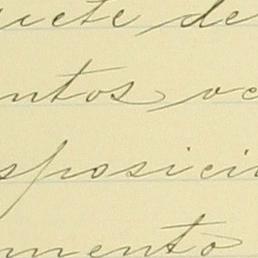 ete de
ntos oc
sposici
mento